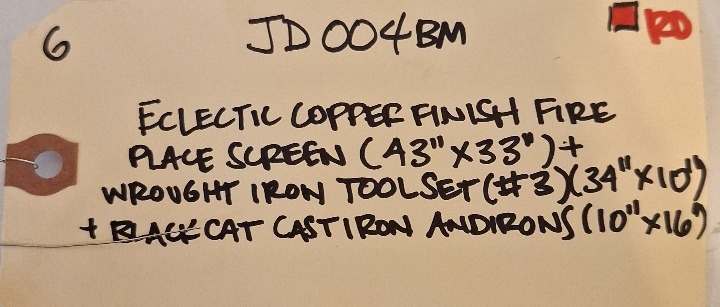 6
JD 004BM
RD
ECLECTIC COPPER FINISH FIRE
PLACE SCREEN (43" X 33") +
WROUGHT IRON TOOLSET (#3)(34" X 10")
+ BLACK CAT CAST IRON ANDIRONS (10" X 16")